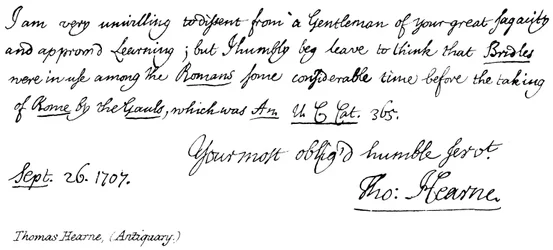 I am very unwilling to dissent from a Gentleman of your great sagacity
and approv'd Learning; but I humbly beg leave to think that Bridles
were in use among the Romans some considerable time before the taking
of Rome by the Gauls, which was An. U. C. Cat. 365.
Your most oblig'd humble servt.
Sept. 26. 1707.
Tho: Hearne.
Thomas Hearne, (Antiquary.)